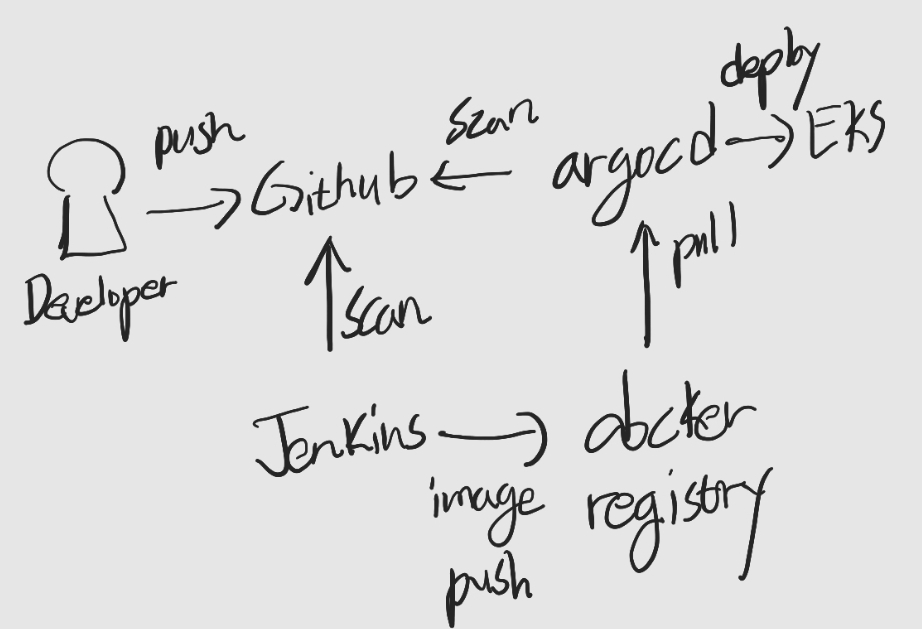 deploy
push
scan
Github
argocd
EKS
Developer
scan
pull
Jenkins
docker
registry
image
push